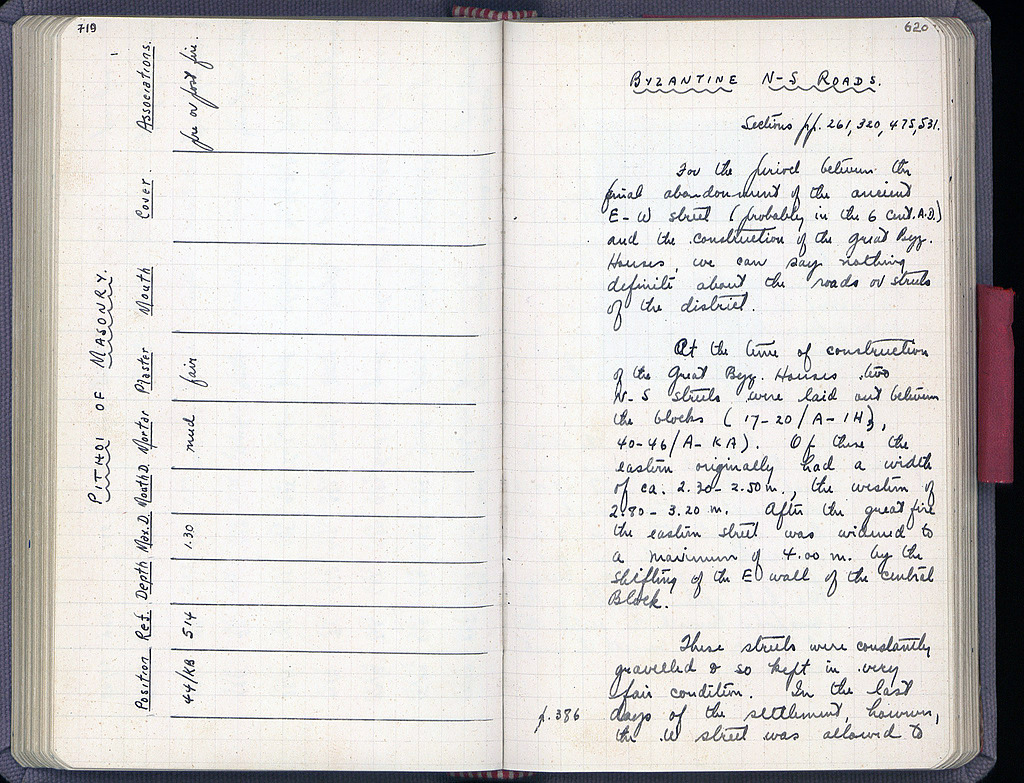 719
PITHOI OF MASONRY.
Position Ref. Depth Max.D. Mouth D. Mortar Plaster Mouth Cover. Associations.
44/KB 514 1.30 mud fair pre or post fire.
620
BYZANTINE N-S ROADS.
Sections pp. 261, 320, 475, 531.
For the period between the
final abandonment of the ancient
E-W street (probably in the 6 cent. A.D.)
and the construction of the great Byz.
Houses, we can say nothing
definite about the roads or streets
of the district.
At the time of construction
of the Great Byz. Houses two
N-S streets were laid out between
the blocks (17-20/A-IH),
40-46/A-KA). Of these the
eastern originally had a width
of ca. 2.30-2.50 m., the western of
2.80-3.20 m. After the great fire
the eastern street was widened to
a maximum of 4.00 m. by the
shifting of the E wall of the central
Block.
These streets were constantly
gravelled & so kept in very
fair condition. In the last
p. 386
days of the settlement, however,
the W street was allowed to